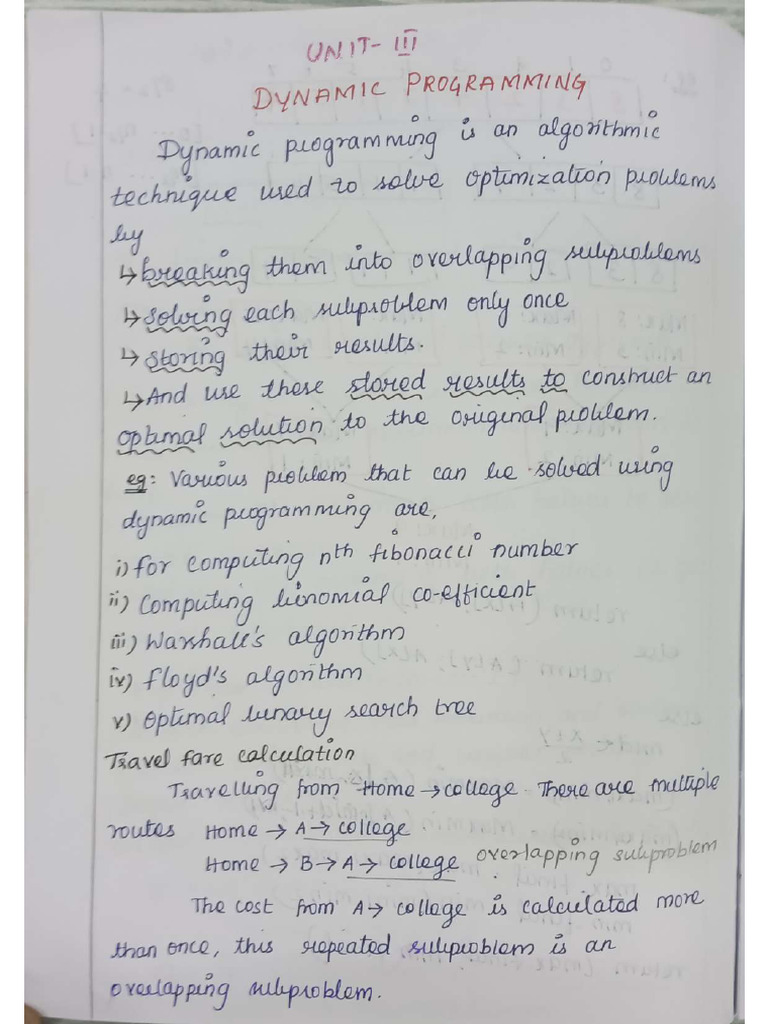 UNIT- III
DYNAMIC PROGRAMMING
Dynamic programming is an algorithmic
technique used to solve optimization problems
by
↳ breaking them into overlapping subproblems
↳ solving each subproblem only once
↳ storing their results.
↳ And use these stored results to construct an
optimal solution to the original problem.
eg: Various problem that can be solved using
dynamic programming are,
i) for computing nth fibonacci number
ii) Computing binomial co-efficient
iii) Warshall's algorithm
iv) Floyd's algorithm
v) Optimal binary search tree
Travel fare calculation
Travelling from Home → college. There are multiple
routes Home → A → college
Home → B → A → college overlapping subproblem
The cost from A → college is calculated more
than once, this repeated subproblem is an
overlapping subproblem.